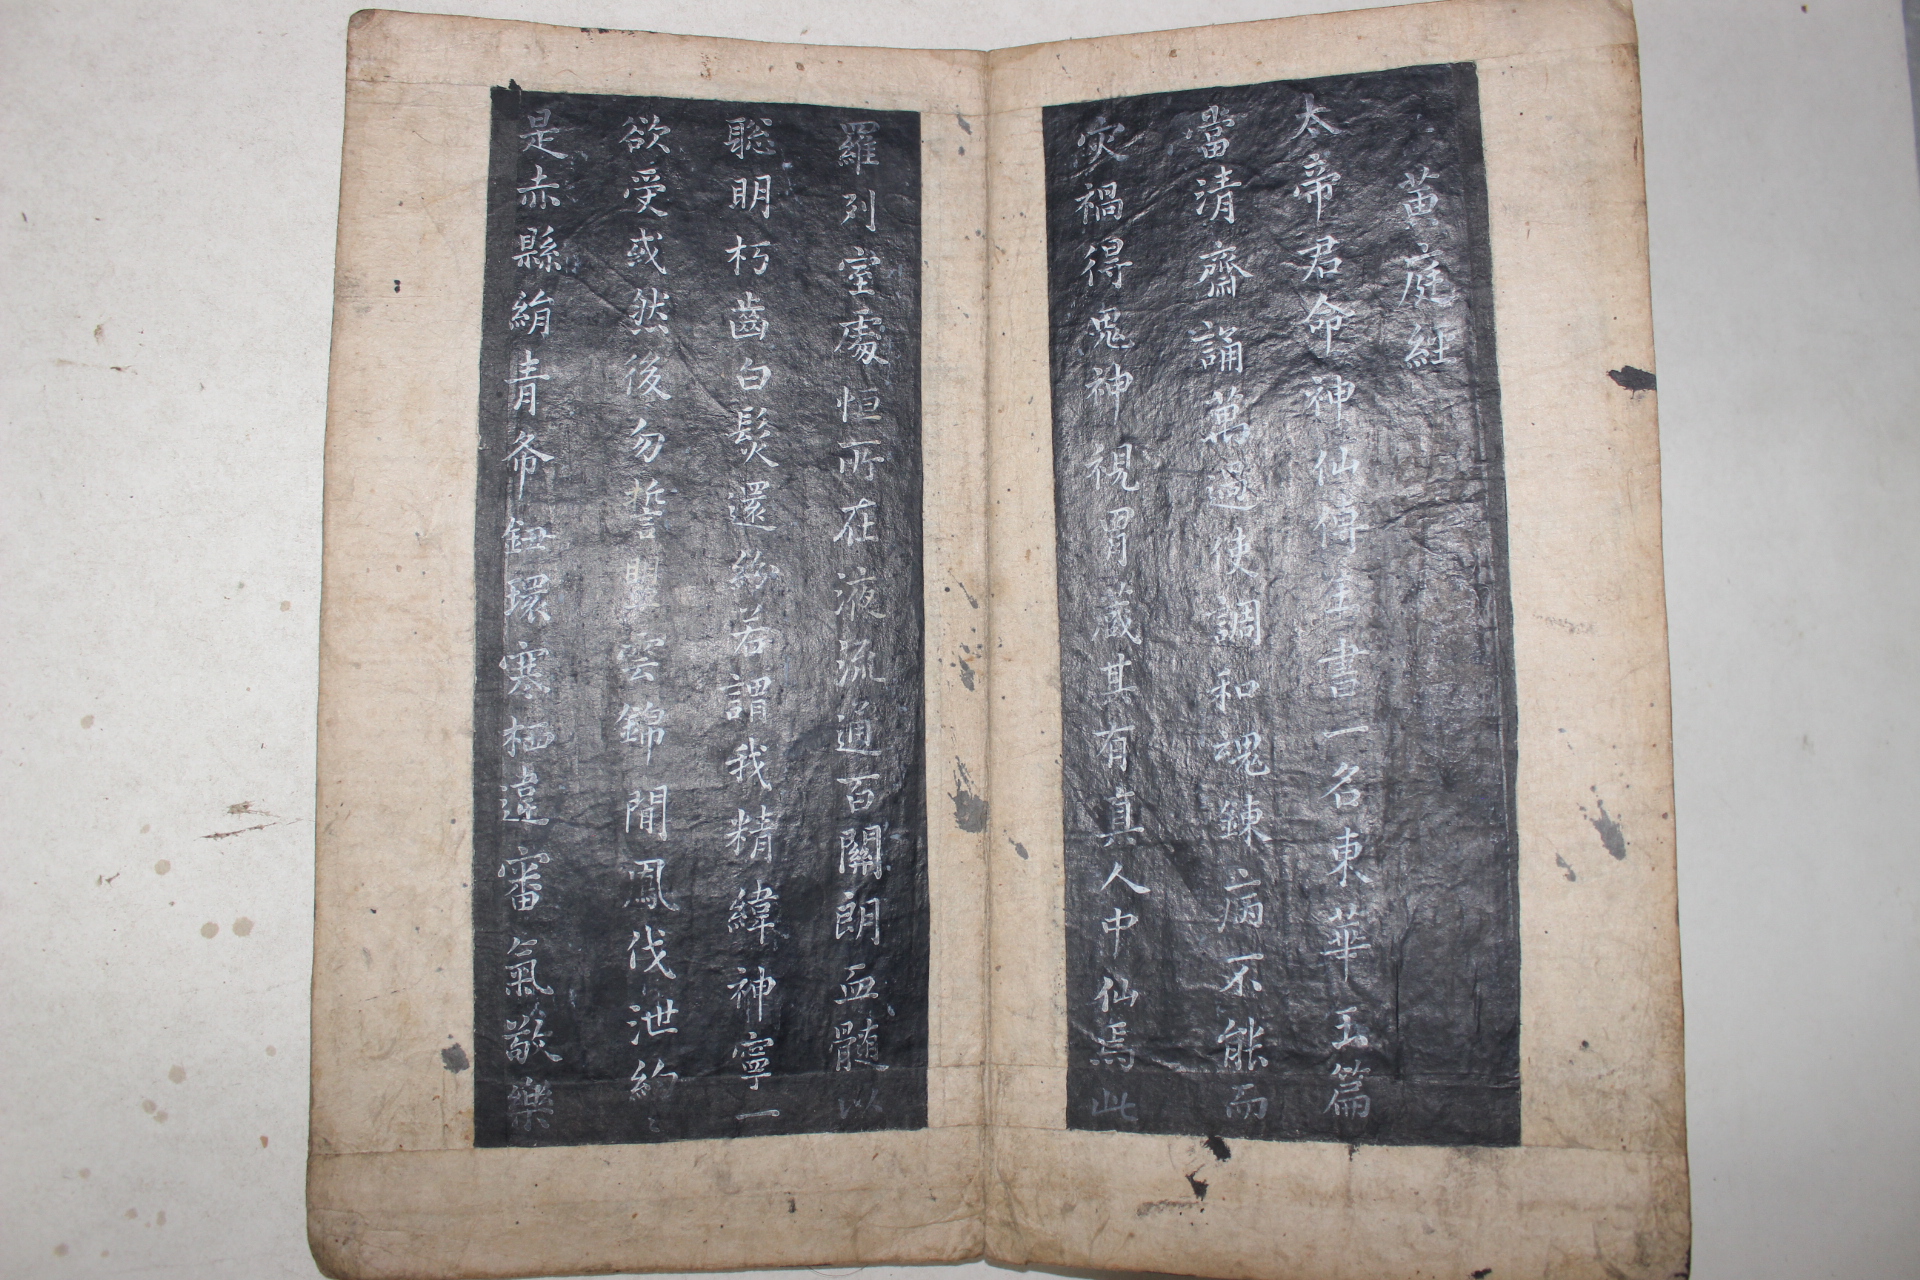 黄庭経
太帝君命神仙傳
書一名東華玉篇
當清齋誦萬過使調和魂錬病不能而
灾禍得鬼神視胃蔵其有真人中仙焉此
羅列室處恒所在液流通百關朗血髓以
聡明朽齒白髮還
若謂我精緯神寧一
欲受或然後勿誓盟雲錦
鳳伐泄約〻
是赤縣絹青
鈕環寒栖違審氣敬樂